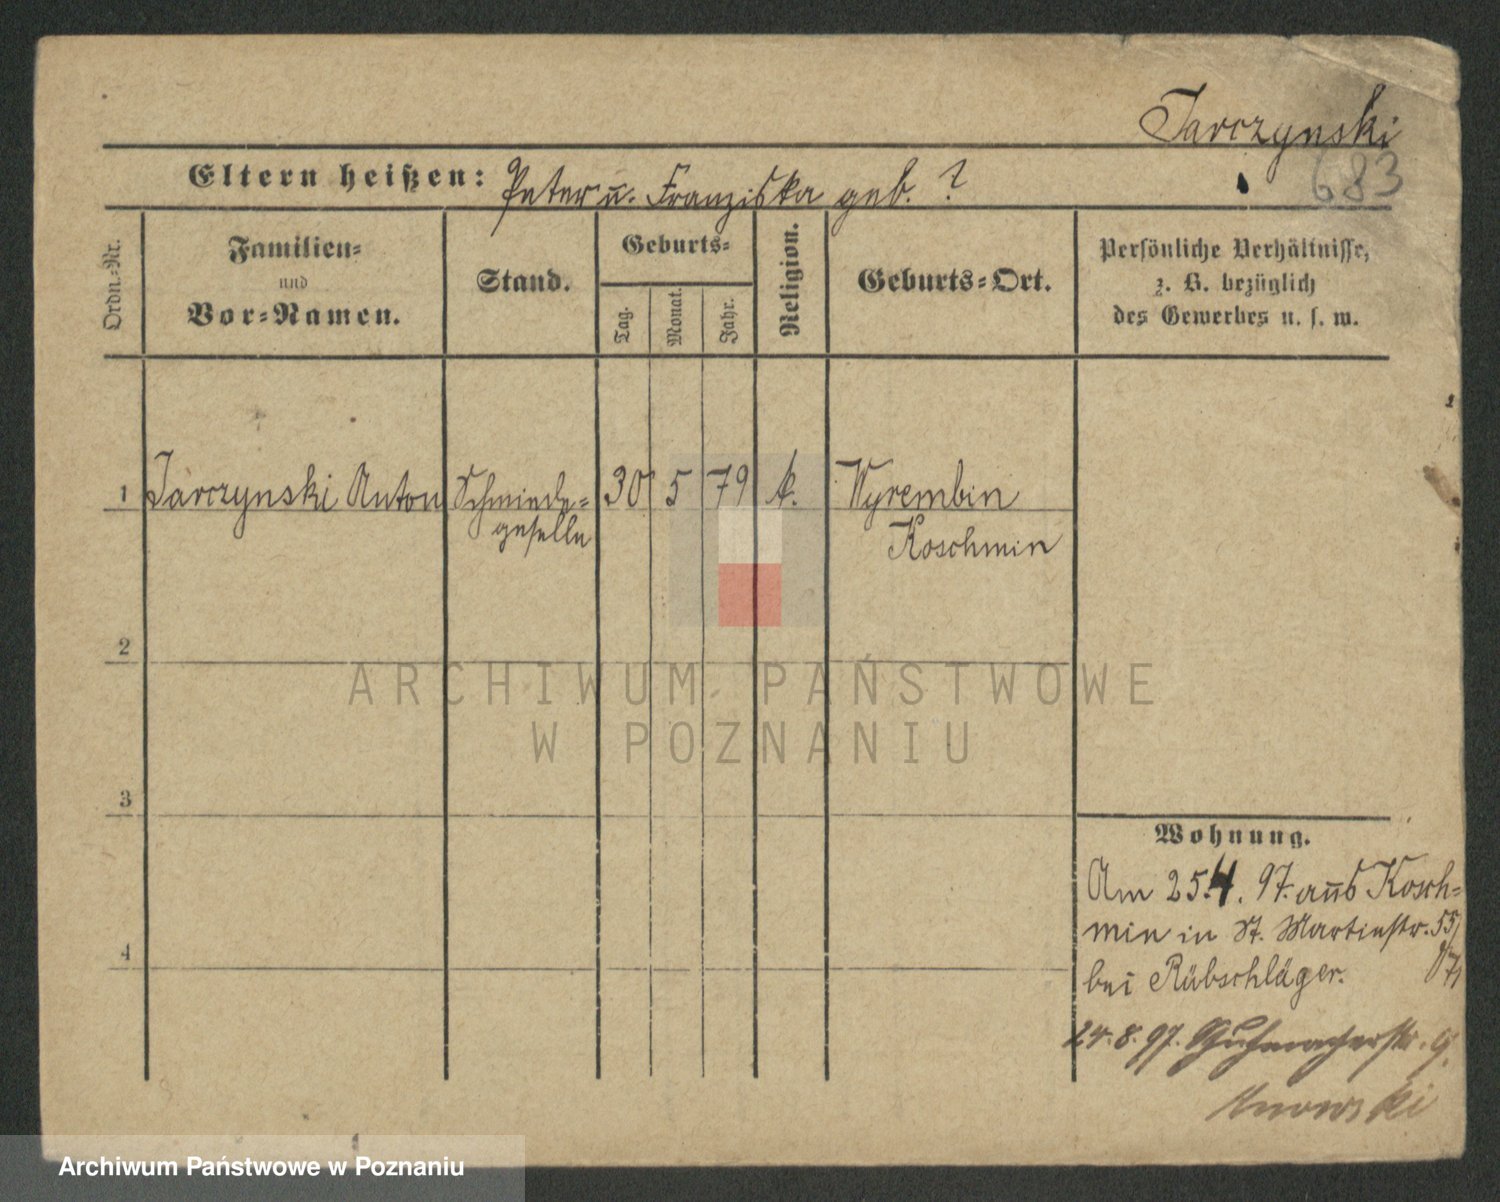 Tarczynski
683
Eltern heißen: Peter u. Franziska geb. ?
Ordn.-Nr.
Familien-
und
Vor-Namen.
Stand.
Geburts-
Tag.
Monat.
Jahr.
Religion.
Geburts-Ort.
Persönliche Verhältnisse,
z. B. bezüglich
des Gewerbes u. s. w.
1 Tarczynski Anton Schmiede- 30 5 79 k. Wyrembin
geselle Koschmin
2
3
4
ARCHIWUM PAŃSTWOWE
W POZNANIU
Wohnung.
Am 25.4.97. aus Kosch-
min in St. Martinstr. 55/
bei Rübschläger.
24.8.97. 9.
Archiwum Państwowe w Poznaniu